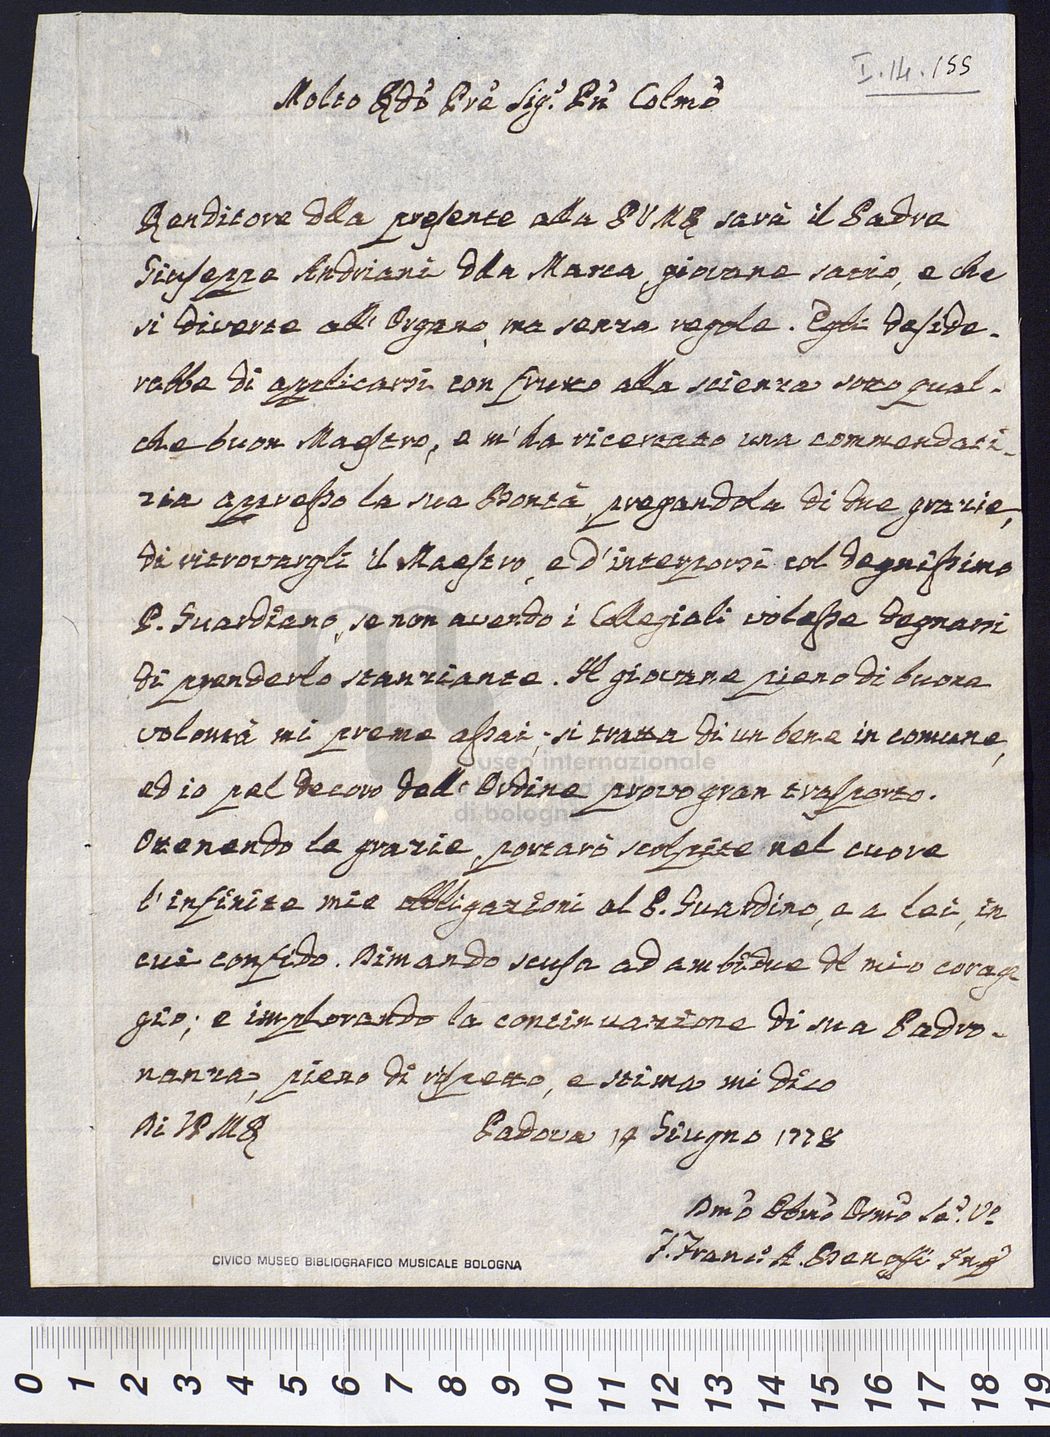 I.14.155
Molto Rdo Pre Sigr Pn Colmo
Renditore dlla presente alla PVMR sarà il Padre
Giuseppe Andriani dlla Marca, giovane savio, e che
si diverte all' Organo, ma senza regole. Egli deside-
rebbe di applicarsi con frutto alla scienza sotto qual-
che buon Maestro, e m'ha ricercato una commendati-
zia appresso la sua Bontà, pregandola di due grazie,
di ritrovargli il Maestro, e d'interporsi col degnissimo
P. Guardiano, se non avendo i Collegiali volesse degnarsi
di prenderlo stanziante. Il giovane pieno di buona
volontà mi preme assai; si tratta di un bene in comune,
ed io pel decoro dell' Ordine provo gran trasporto.
Ottenendo le grazie, portarò scolpite nel cuore
l'infinite mie obbligazioni al P. Guardino, e a Lei, in
cui confido. Dimando scusa ad ambidue dl mio corag-
gio; e implorando la continuazione di sua Padro-
nanza, pieno di rispetto, e stima mi dico
Di VPMR Padova 14 Giugno 1778
Dmo Obmo Osmo
F. Franco A.
museo internazionale
di bologna
CIVICO MUSEO BIBLIOGRAFICO MUSICALE BOLOGNA
0 1 2 3 4 5 6 7 8 9 10 11 12 13 14 15 16 17 18 19